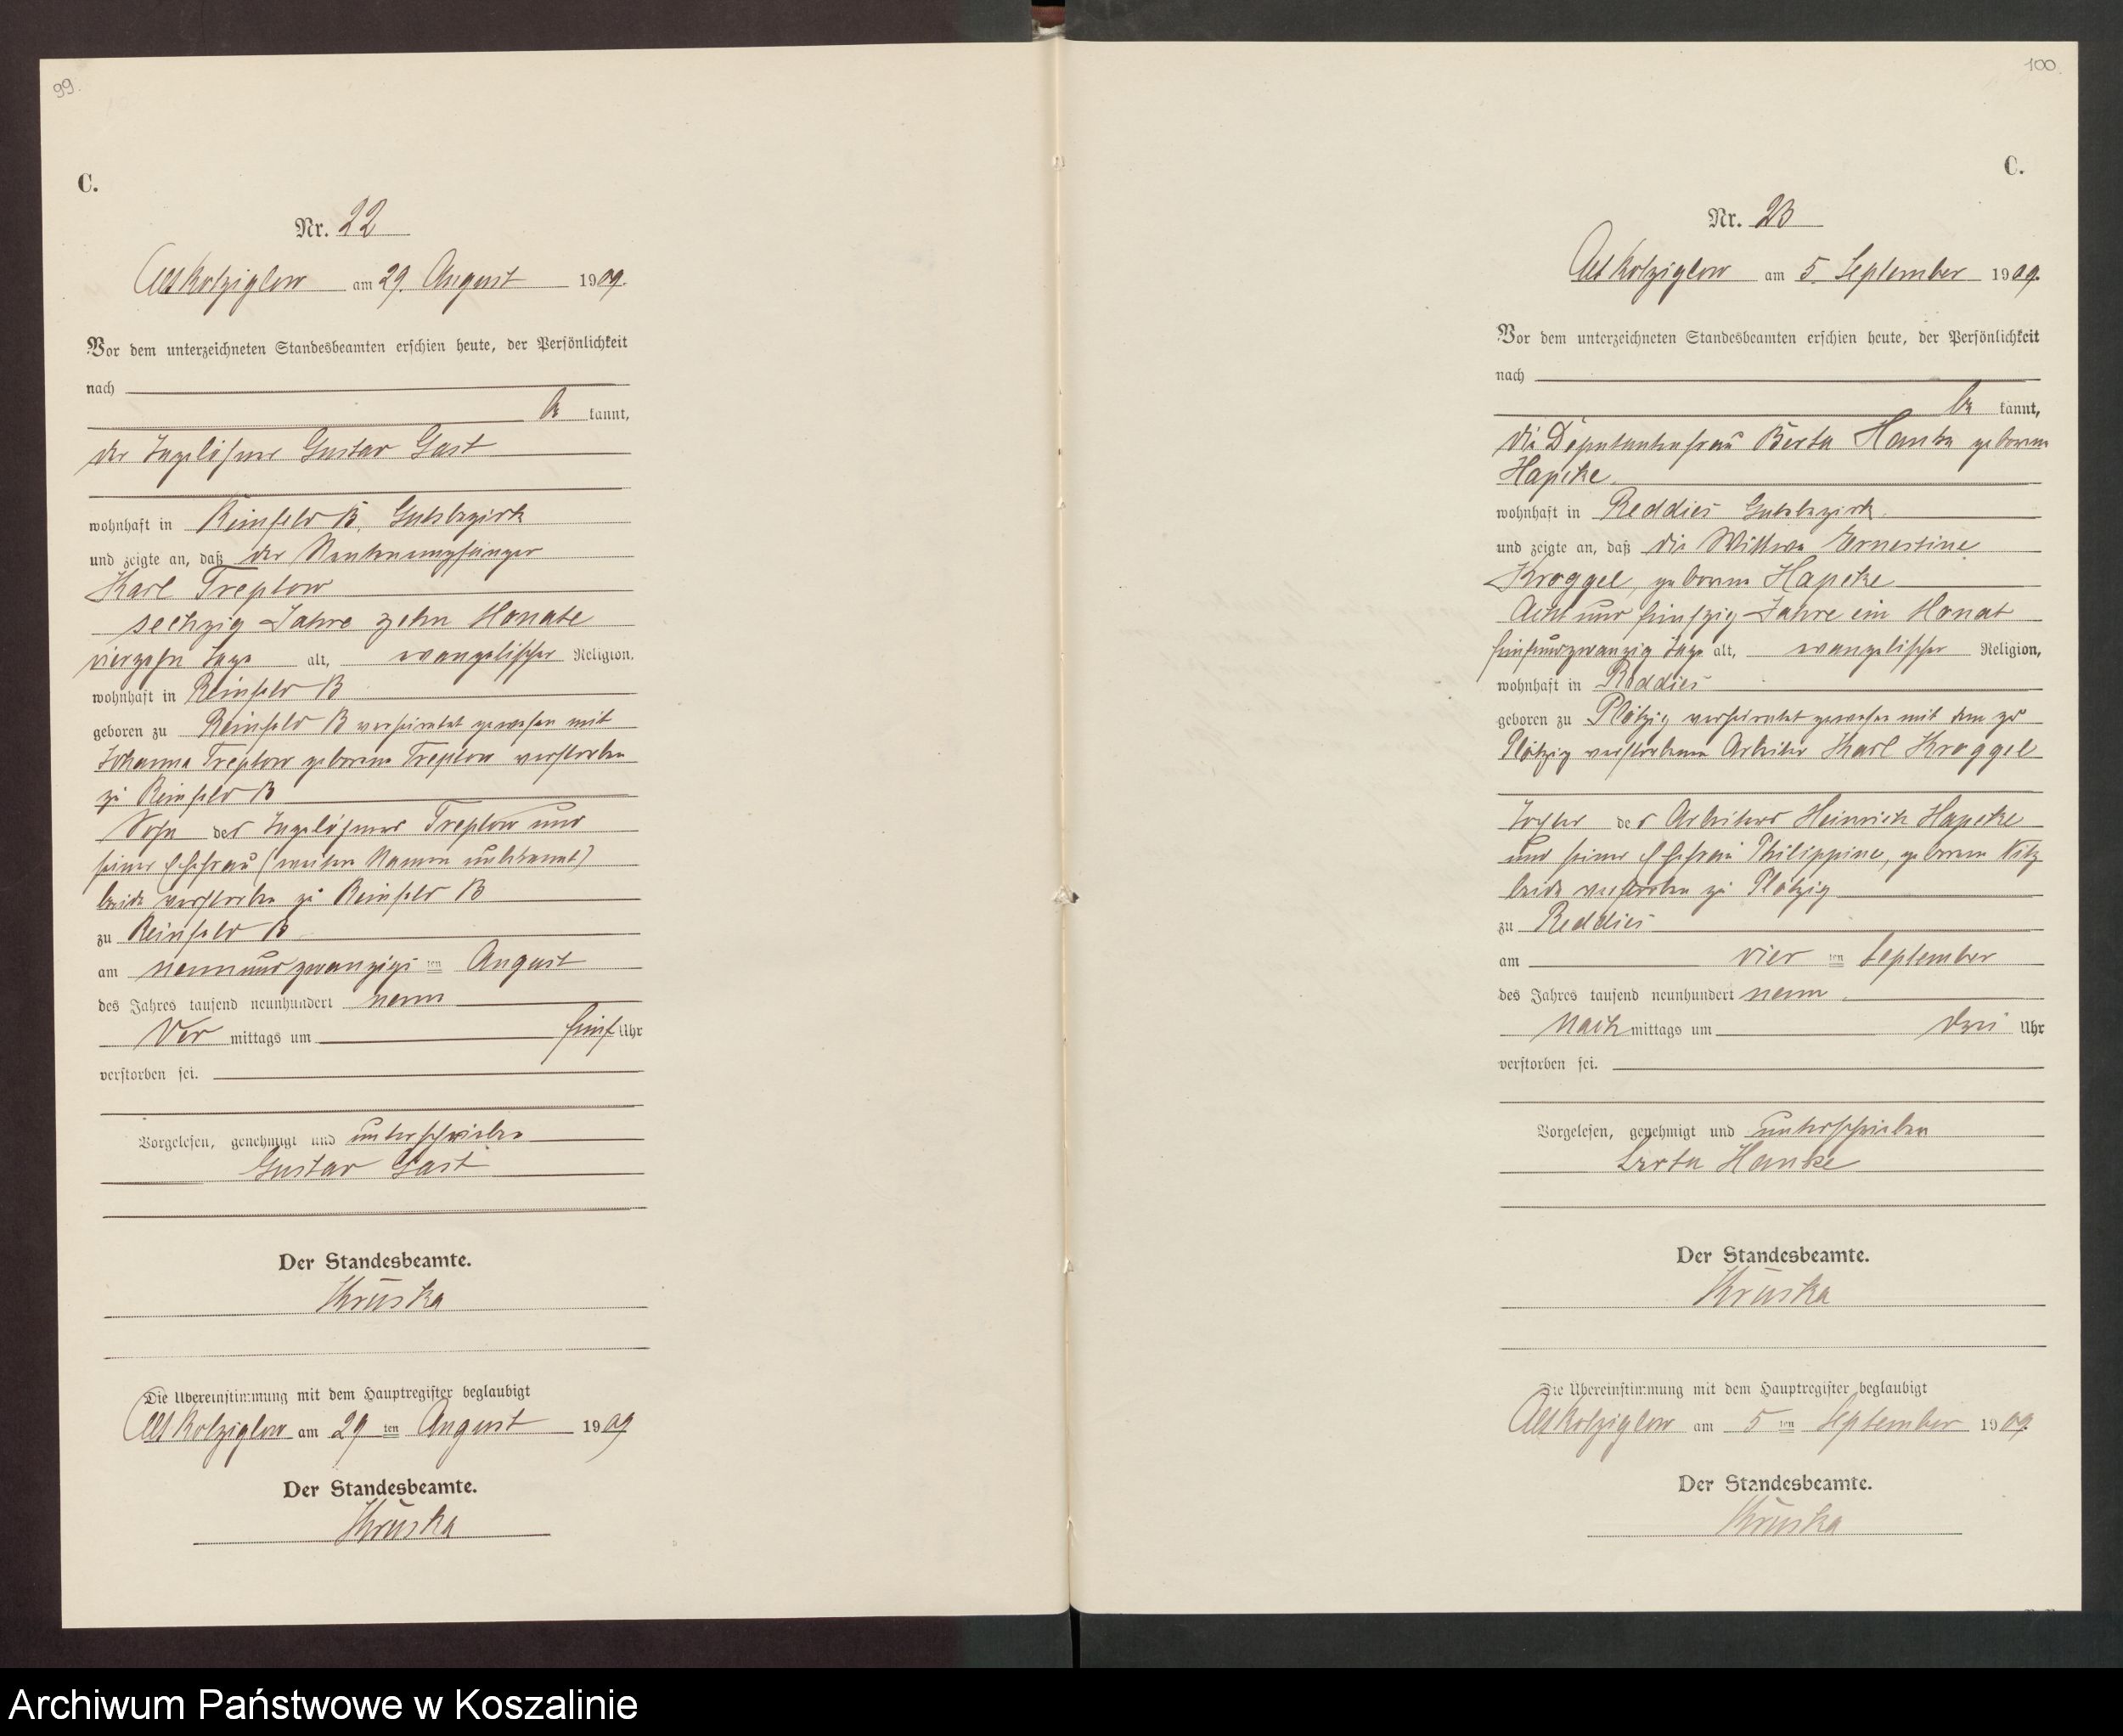 99.
C.
Nr. 22
Alt Kolziglow am 29. August 1909.
Vor dem unterzeichneten Standesbeamten erschien heute, der Persönlichkeit
nach
be kannt,
der Tagelöhner Gustav Gast
wohnhaft in Reinfeld B, Gutsbezirk
und zeigte an, daß der Rentenempfänger
Karl Treptow
sechzig Jahre zehn Monate
vierzehn Tage alt, evangelischer Religion,
wohnhaft in Reinfeld B
geboren zu Reinfeld B verheiratet gewesen mit
Johanna Treptow geborene Treptow verstorben
zu Reinfeld B
Sohn des Tagelöhners Treptow und
seiner Ehefrau (weitere Namen unbekannt)
beide verstorben zu Reinfeld B
zu Reinfeld B
am neunundzwanzigsten August
des Jahres tausend neunhundert neun
Vor mittags um fünf Uhr
verstorben sei.
Vorgelesen, genehmigt und unterschrieben
Gustav Gast
Der Standesbeamte.
Kruska
Die Übereinstimmung mit dem Hauptregister beglaubigt
Alt Kolziglow am 29 ten August 1909
Der Standesbeamte.
Kruska
100.
C.
Nr. 23
Alt Kolziglow am 5. September 1909.
Vor dem unterzeichneten Standesbeamten erschien heute, der Persönlichkeit
nach
be kannt,
die Deputantenfrau Berta Hanke geborene
Hapcke
wohnhaft in Reddies Gutsbezirk
und zeigte an, daß die Wittwe Ernestine
Kroggel, geborene Hapcke
Acht und fünfzig Jahre ein Monat
fünfundzwanzig Tage alt, evangelischer Religion,
wohnhaft in Reddies
geboren zu Plötzig verheiratet gewesen mit dem zu
Plötzig verstorbenen Arbeiter Karl Kroggel
Tochter des Arbeiters Heinrich Hapcke
und seiner Ehefrau Philippine, geborene
beide verstorben zu Plötzig
zu Reddies
am vier ten September
des Jahres tausend neunhundert neun
Nach mittags um drei Uhr
verstorben sei.
Vorgelesen, genehmigt und unterschrieben
Berta Hanke
Der Standesbeamte.
Kruska
Die Übereinstimmung mit dem Hauptregister beglaubigt
Alt Kolziglow am 5 ten September 1909.
Der Standesbeamte.
Kruska
Archiwum Państwowe w Koszalinie